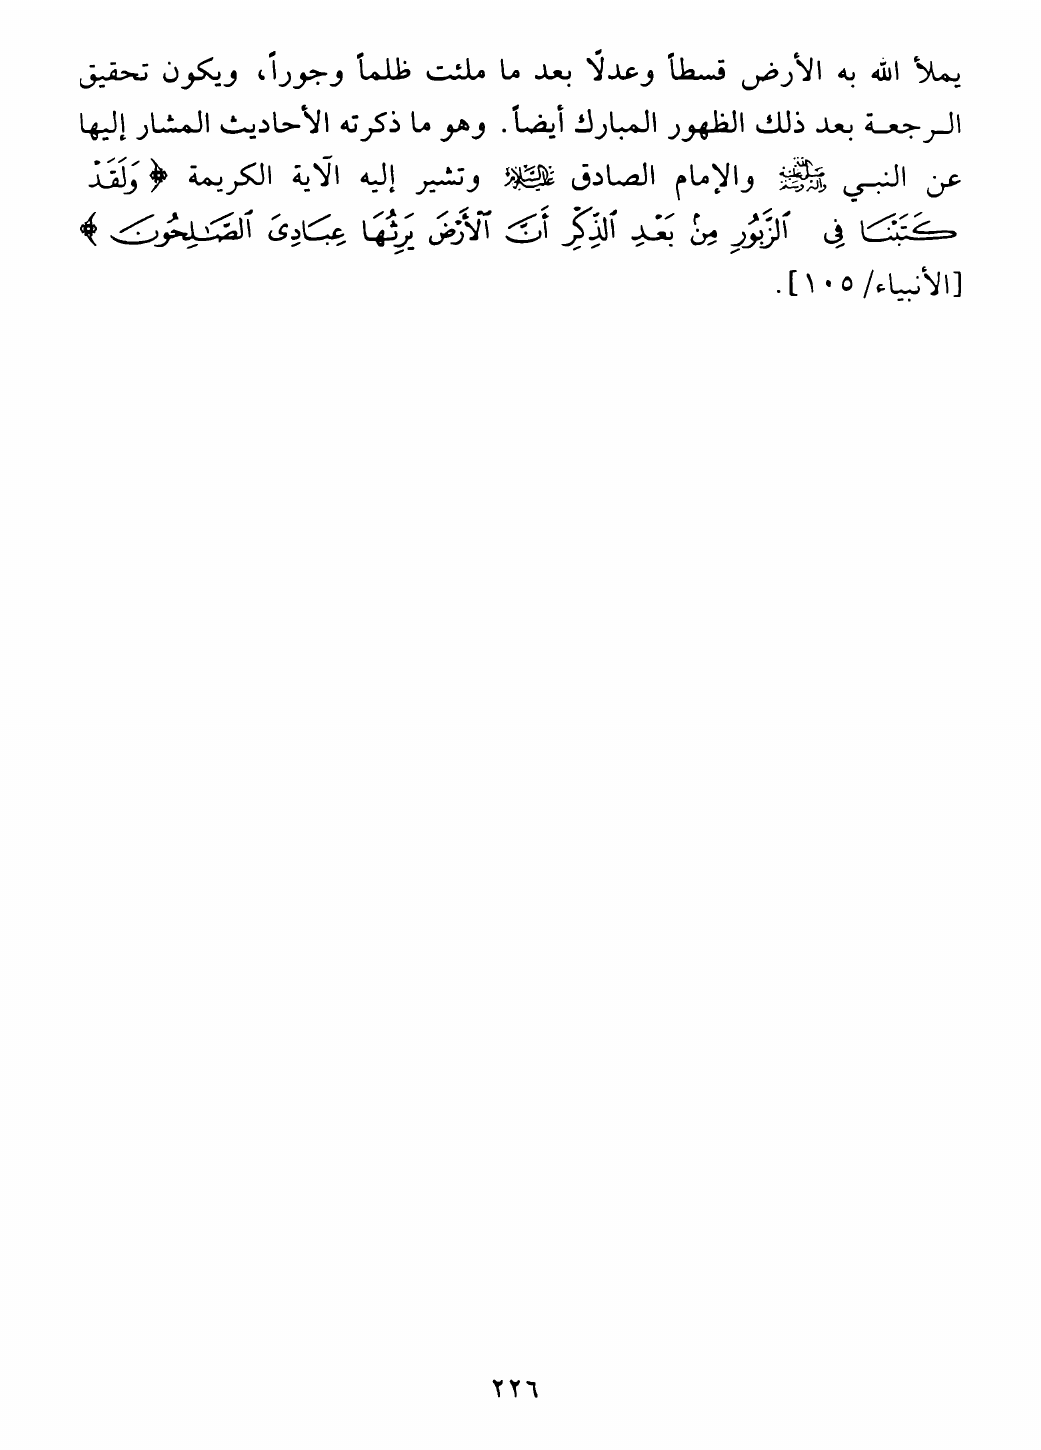 يملأ الله به الأرض قسطاً وعدلًا بعد ما ملئت ظلماً وجوراً، ويكون تحقيق
الرجعة بعد ذلك الظهور المبارك أيضاً. وهو ما ذكرته الأحاديث المشار إليها
عن النبي ﷺ والإمام الصادق عليه السلام وتشير إليه الآية الكريمة ﴿وَلَقَدْ
كَتَبْنَا فِي ٱلزَّبُورِ مِنْ بَعْدِ ٱلذِّكْرِ أَنَّ ٱلْأَرْضَ يَرِثُهَا عِبَادِيَ ٱلصَّـٰلِحُونَ﴾
[الأنبياء/ ١٠٥].
٢٢٦